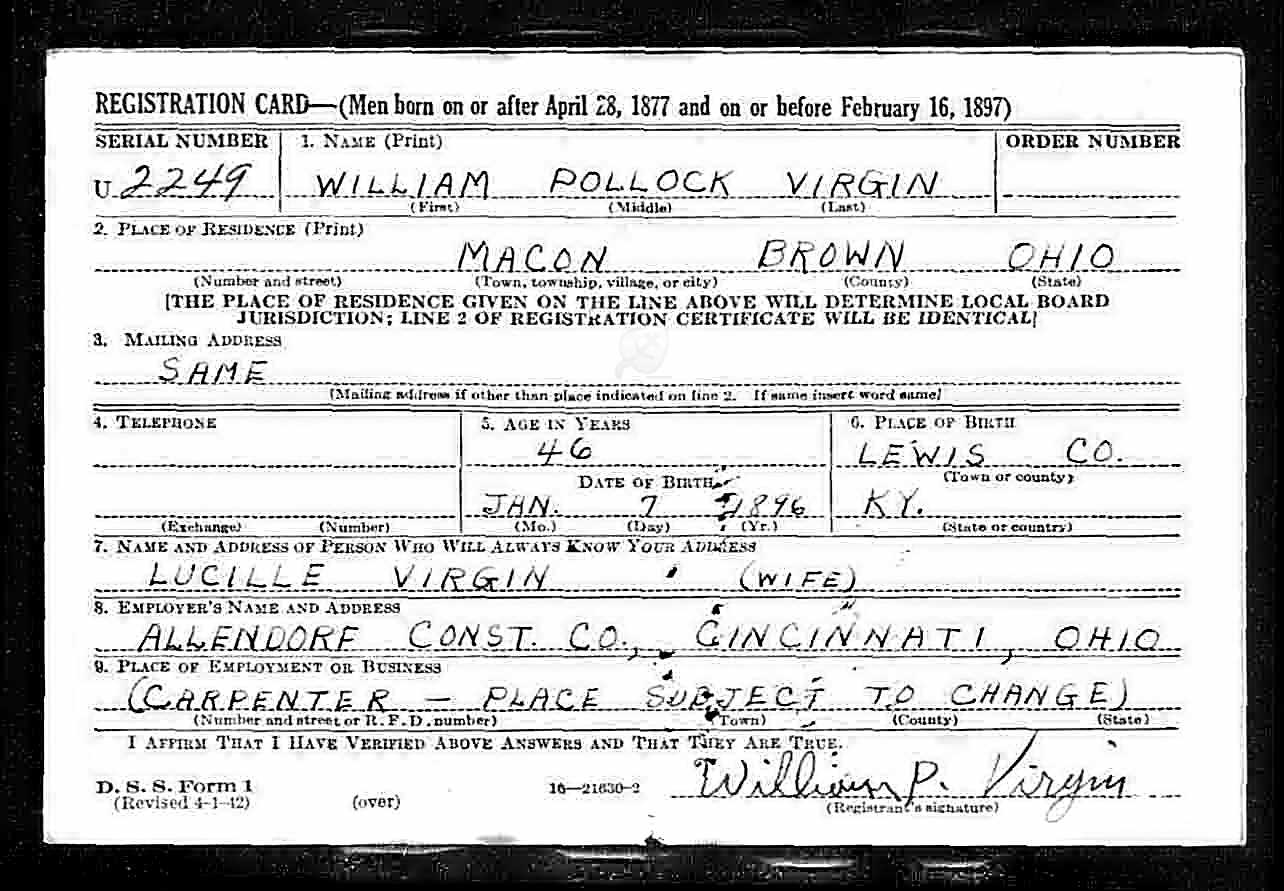 REGISTRATION CARD—(Men born on or after April 28, 1877 and on or before February 16, 1897)
SERIAL NUMBER 1. NAME (Print) ORDER NUMBER
U 2249 WILLIAM POLLOCK VIRGIN
(First) (Middle) (Last)
2. PLACE OF RESIDENCE (Print)
MACON BROWN OHIO
(Number and street) (Town, township, village, or city) (County) (State)
[THE PLACE OF RESIDENCE GIVEN ON THE LINE ABOVE WILL DETERMINE LOCAL BOARD
JURISDICTION; LINE 2 OF REGISTRATION CERTIFICATE WILL BE IDENTICAL]
3. MAILING ADDRESS
SAME
[Mailing address if other than place indicated on line 2. If same insert word same]
4. TELEPHONE 5. AGE IN YEARS 6. PLACE OF BIRTH
46 LEWIS CO.
DATE OF BIRTH (Town or county)
JAN. 7 1896 KY.
(Exchange) (Number) (Mo.) (Day) (Yr.) (State or country)
7. NAME AND ADDRESS OF PERSON WHO WILL ALWAYS KNOW YOUR ADDRESS
LUCILLE VIRGIN (WIFE)
8. EMPLOYER'S NAME AND ADDRESS
ALLENDORF CONST. CO., CINCINNATI, OHIO
9. PLACE OF EMPLOYMENT OR BUSINESS
(CARPENTER – PLACE SUBJECT TO CHANGE)
(Number and street or R. F. D. number) (Town) (County) (State)
I AFFIRM THAT I HAVE VERIFIED ABOVE ANSWERS AND THAT THEY ARE TRUE.
D. S. S. Form 1 William P. Virgin
(Revised 4-1-42) (over) 16—21630-2 (Registrant's signature)